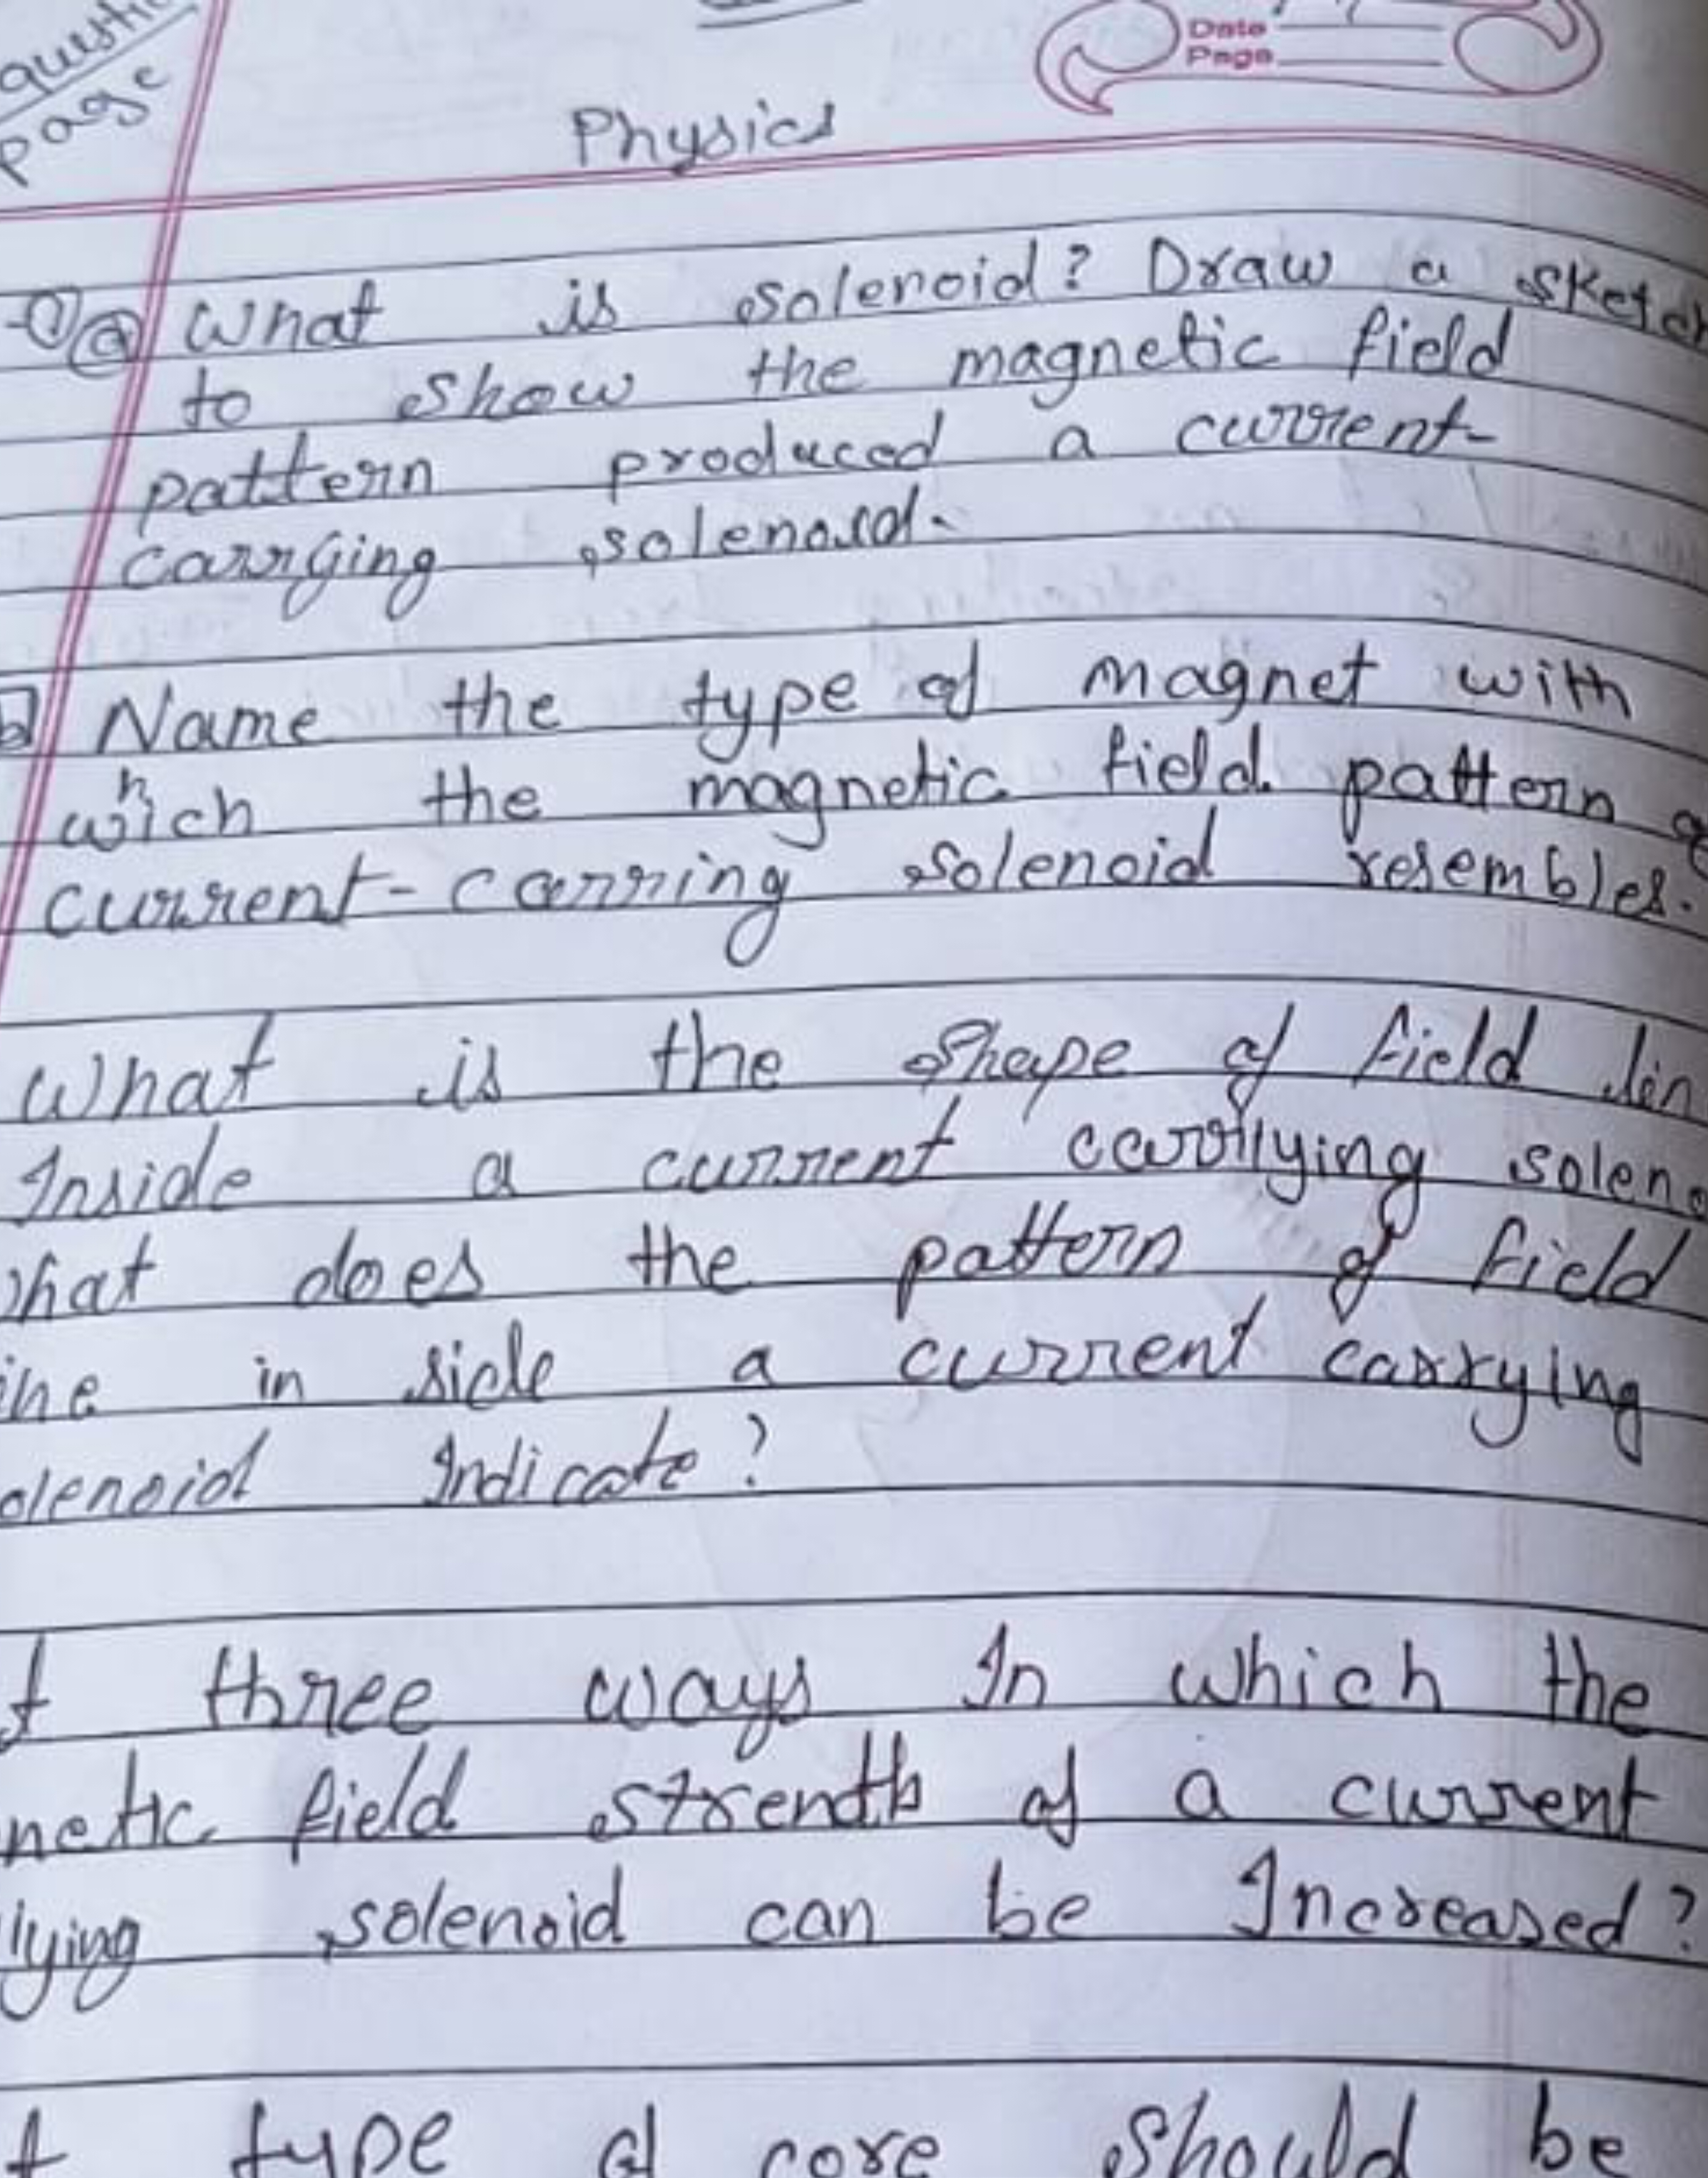 page
Date
Page
Physics
a What is solenoid? Draw a sketch
to show the magnetic field
pattern produced a current-
carrying solenoid.
b Name the type of magnet with
which the magnetic field pattern
current-carring solenoid resembles.
What is the shape of field
Inside a current carrying
does the pattern of field
in side a current carrying
Indicate?
three ways In which the
field strenth of a current
solenoid can be Increased?
type of core should be